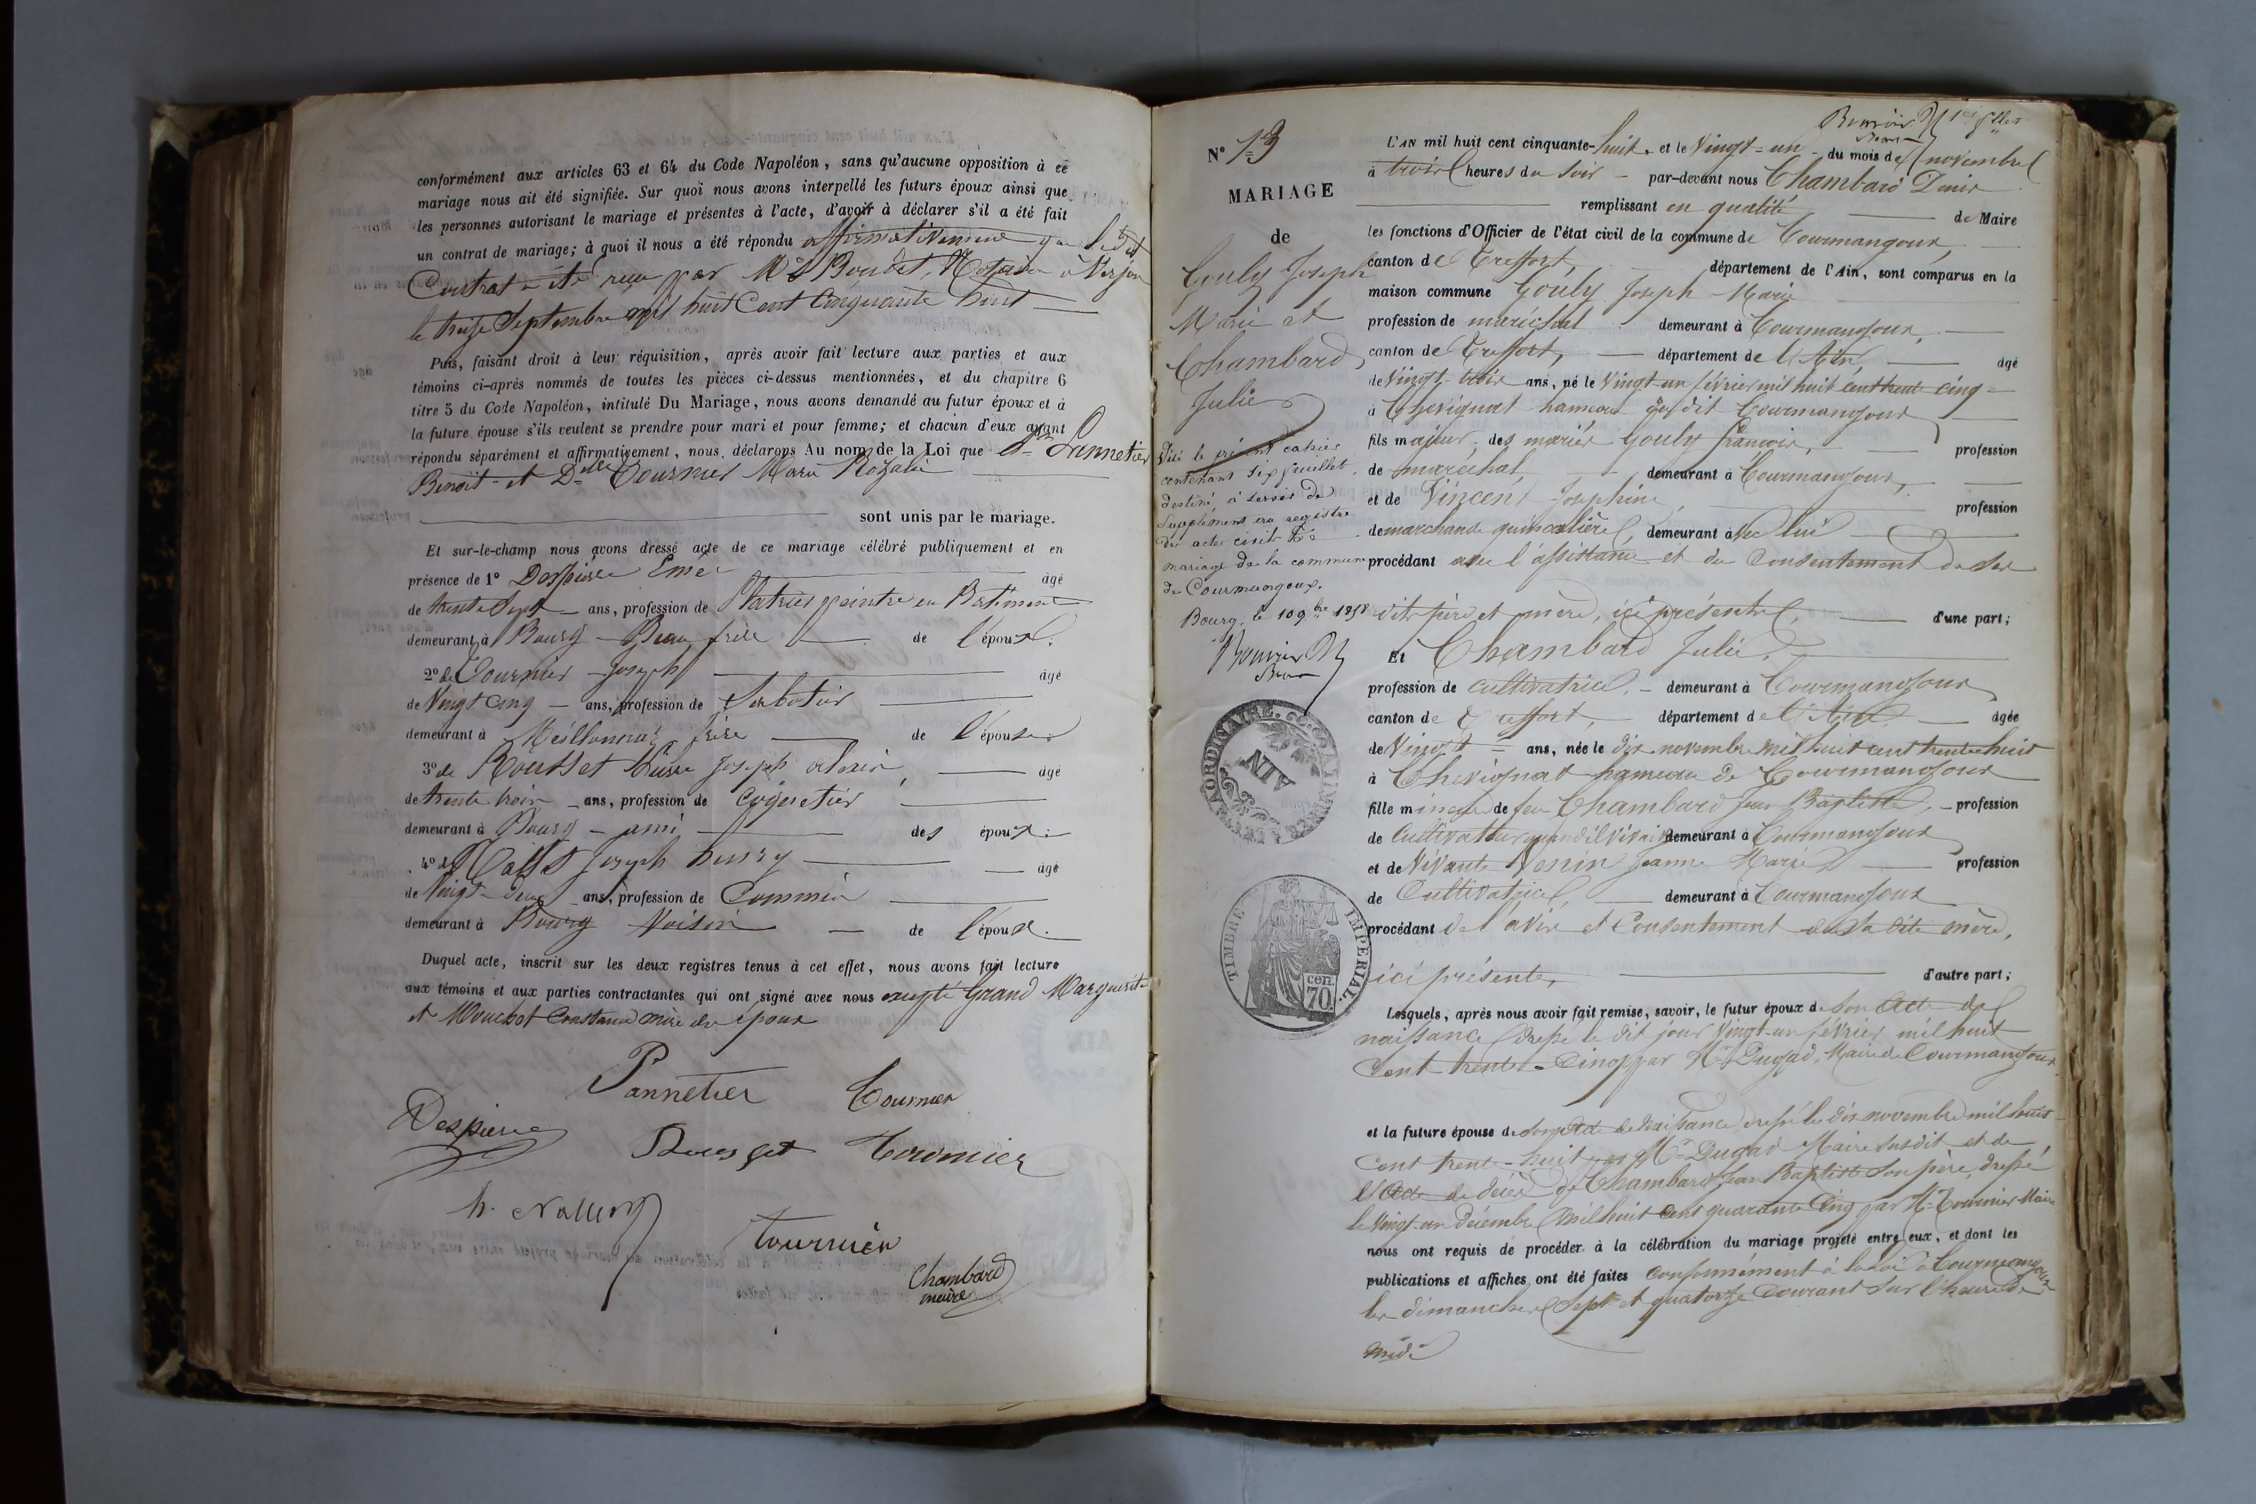 conformément aux articles 63 et 64 du Code Napoléon, sans qu'aucune opposition à ce
mariage nous ait été signifiée. Sur quoi nous avons interpellé les futurs époux ainsi que
les personnes autorisant le mariage et présentes à l'acte, d'avoir à déclarer s'il a été fait
un contrat de mariage; à quoi il nous a été répondu affirmativement que ledit
Contrat a été reçu par Me Boudet, Notaire à Verjon
le treize Septembre mil huit Cent Cinquante huit
Puis, faisant droit à leur réquisition, après avoir fait lecture aux parties et aux
témoins ci-après nommés de toutes les pièces ci-dessus mentionnées, et du chapitre 6
titre 5 du Code Napoléon, intitulé Du Mariage, nous avons demandé au futur époux et à
la future épouse s'ils veulent se prendre pour mari et pour femme; et chacun d'eux ayant
répondu séparément et affirmativement, nous déclarons Au nom de la Loi que Sr Pannetier
Benoit et Dlle Tournier Marie Rozalie
sont unis par le mariage.
Et sur-le-champ nous avons dressé acte de ce mariage célébré publiquement et en
présence de 1° Despierre Emé âgé
de trente Sept ans, profession de Platrier peintre en Batiment
demeurant à Bourg Beau frère de l'époux.
2° de Tournier Joseph âgé
de Vingt Cinq ans, profession de Sabotier
demeurant à Meillonnaz frère de l'épouse
3° de Rousset Pierre Joseph alexis âgé
de trente trois ans, profession de Coquetier
demeurant à Bourg - ami des époux.
4° de Joseph henry âgé
de Vingt-Deux ans, profession de Commis
demeurant à Bourg Voisin de l'époux.
Duquel acte, inscrit sur les deux registres tenus à cet effet, nous avons fait lecture
aux témoins et aux parties contractantes qui ont signé avec nous excepté Grand Marguerite
et Mouchot Constance mère des époux
Pannetier Tournier
Despierre Rousset Tournier
h.
Tournier
Chambard
maire
N° 13
MARIAGE
de
Gouly Joseph
Marie et
Chambard
Julie
Vu le présent cahier
contenant six feuillets
destiné à servir de
Supplément au registre
des actes civils de
mariage de la commune
de Courmangoux.
Bourg, le 10 9bre 1858
EXTRAORDINAIRE
AIN
TIMBRE IMPÉRIAL.
cen.
70
L'AN mil huit cent cinquante-huit, et le Vingt-un du mois de novembre
à trois heures du Soir par-devant nous Chambard Denis
remplissant en qualité de Maire
les fonctions d'Officier de l'état civil de la commune de Courmangoux,
canton de Treffort, département de l'Ain, sont comparus en la
maison commune Gouly Joseph Marie
profession de maréchal demeurant à Courmangoux,
canton de Treffort, département de l'Ain âgé
de Vingt-trois ans, né le Vingt-un février mil huit cent trente cinq
à Chevignat hameau dudit Courmangoux
fils majeur, des mariés Gouly françois, profession
de maréchal, demeurant à Courmangoux,
et de Vincent Joséphine profession
de marchande quincalière, demeurant avec lui
procédant avec l'assistance et du Consentement de ses
dits père et mère, ici présents, d'une part;
Et Chambard Julie,
profession de cultivatrice, demeurant à Courmangoux
canton de Treffort, département de l'Ain âgée
de Vingt ans, née le dix novembre mil huit cent trente huit
à Chevignat hameau de Courmangoux
fille mineure de feu Chambard Jean Baptiste, profession
de Cultivateur quand il vivait demeurant à Courmangoux
et de Vivante Jeanne Marie profession
de Cultivatrice, demeurant à Courmangoux
procédant de l'avis et Consentement de sa dite mère,
ici présente, d'autre part;
Lesquels, après nous avoir fait remise, savoir, le futur époux de son acte de
naissance dressé le dit jour Vingt-un février mil huit
Cent trente-Cinq par Mr Dugad, Maire de Courmangoux
et la future épouse de Son Acte de Naissance dressé le dix novembre mil huit
Cent trente-huit par Mr Dugad Maire Susdit et de
l'Acte de décès de Chambard Jean Baptiste Son père, dressé
le Vingt-un décembre mil huit Cent quarante Cinq par Mr Tournier Maire
nous ont requis de procéder à la célébration du mariage projeté entre eux, et dont les
publications et affiches ont été faites Conformément à la loi à Courmangoux
les dimanches Sept et quatorze Courant Sur l'heure de
midi